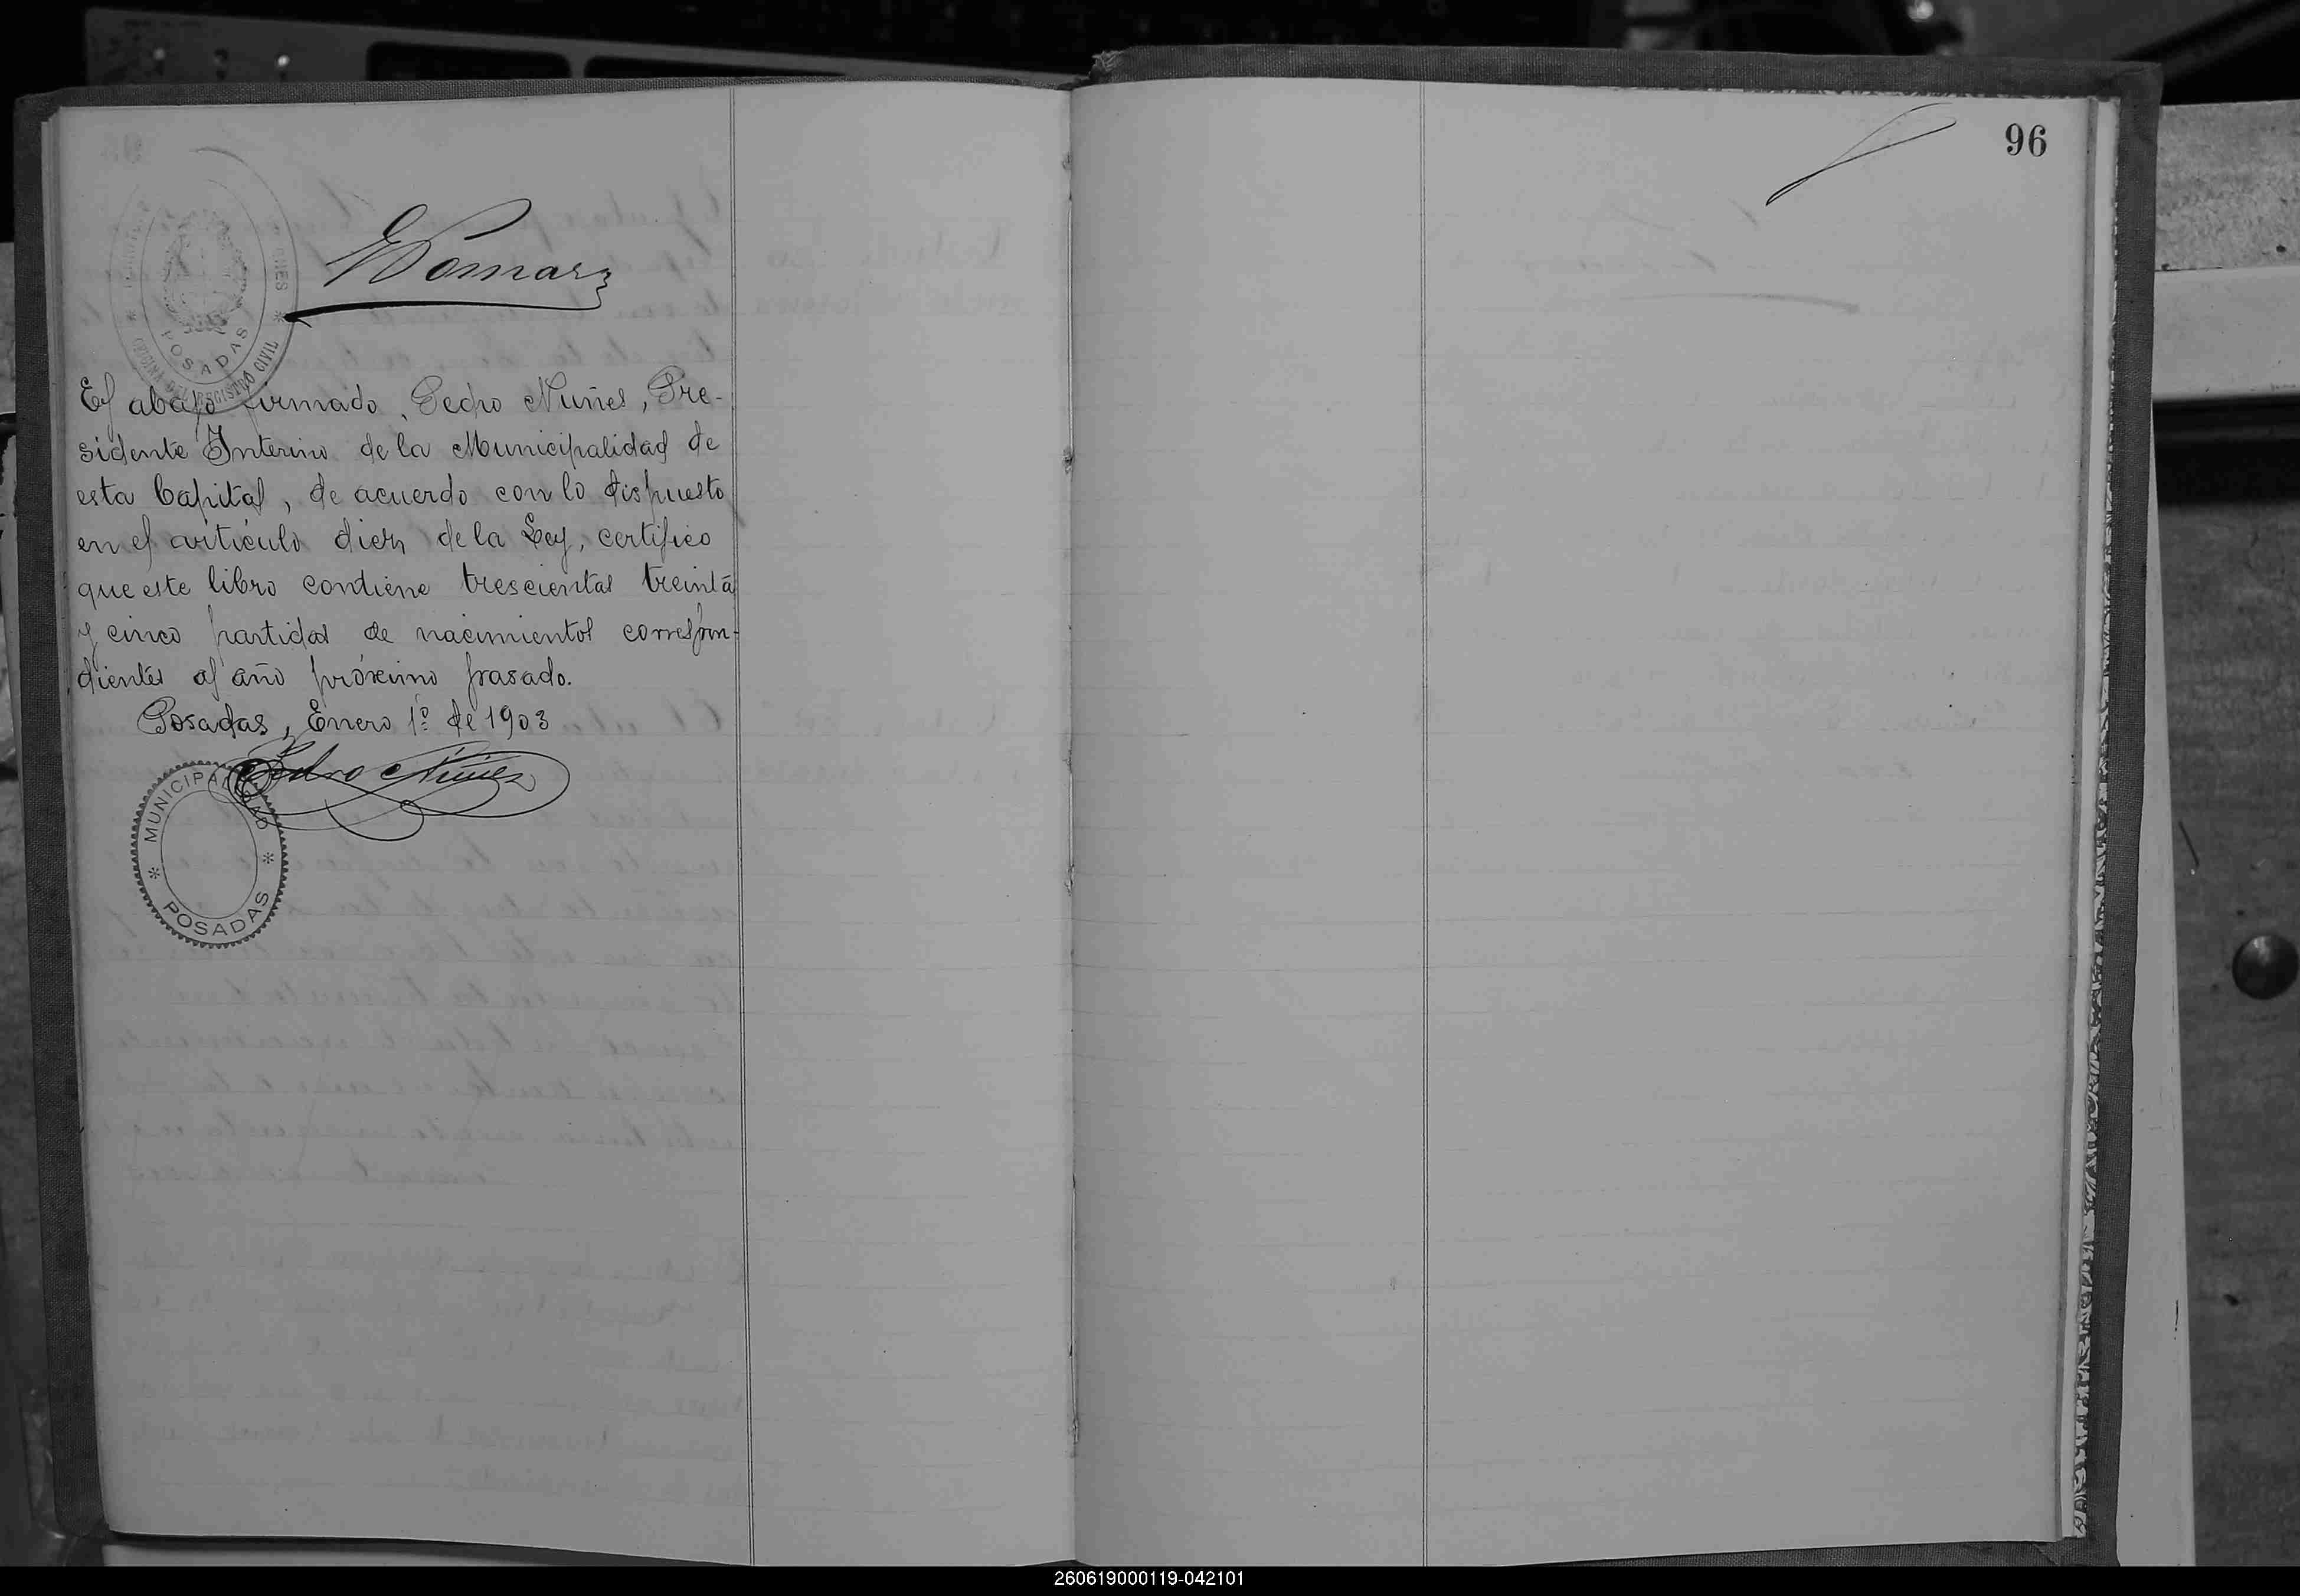 96
POSADAS
OFICINA DEL REGISTRO CIVIL
El abajo firmado, Pedro Nuñes, Pre-
sidente Interino de la Municipalidad de
esta Capital, de acuerdo con lo dispuesto
en el artículo diez de la Ley, certifico
que este libro contiene trescientas treinta
y cinco partidas de nacimientos correspon-
dientes al año próximo pasado.
Posadas, Enero 1º de 1903
Pedro Nuñez
MUNICIPALIDAD
POSADAS
260619000119-042101